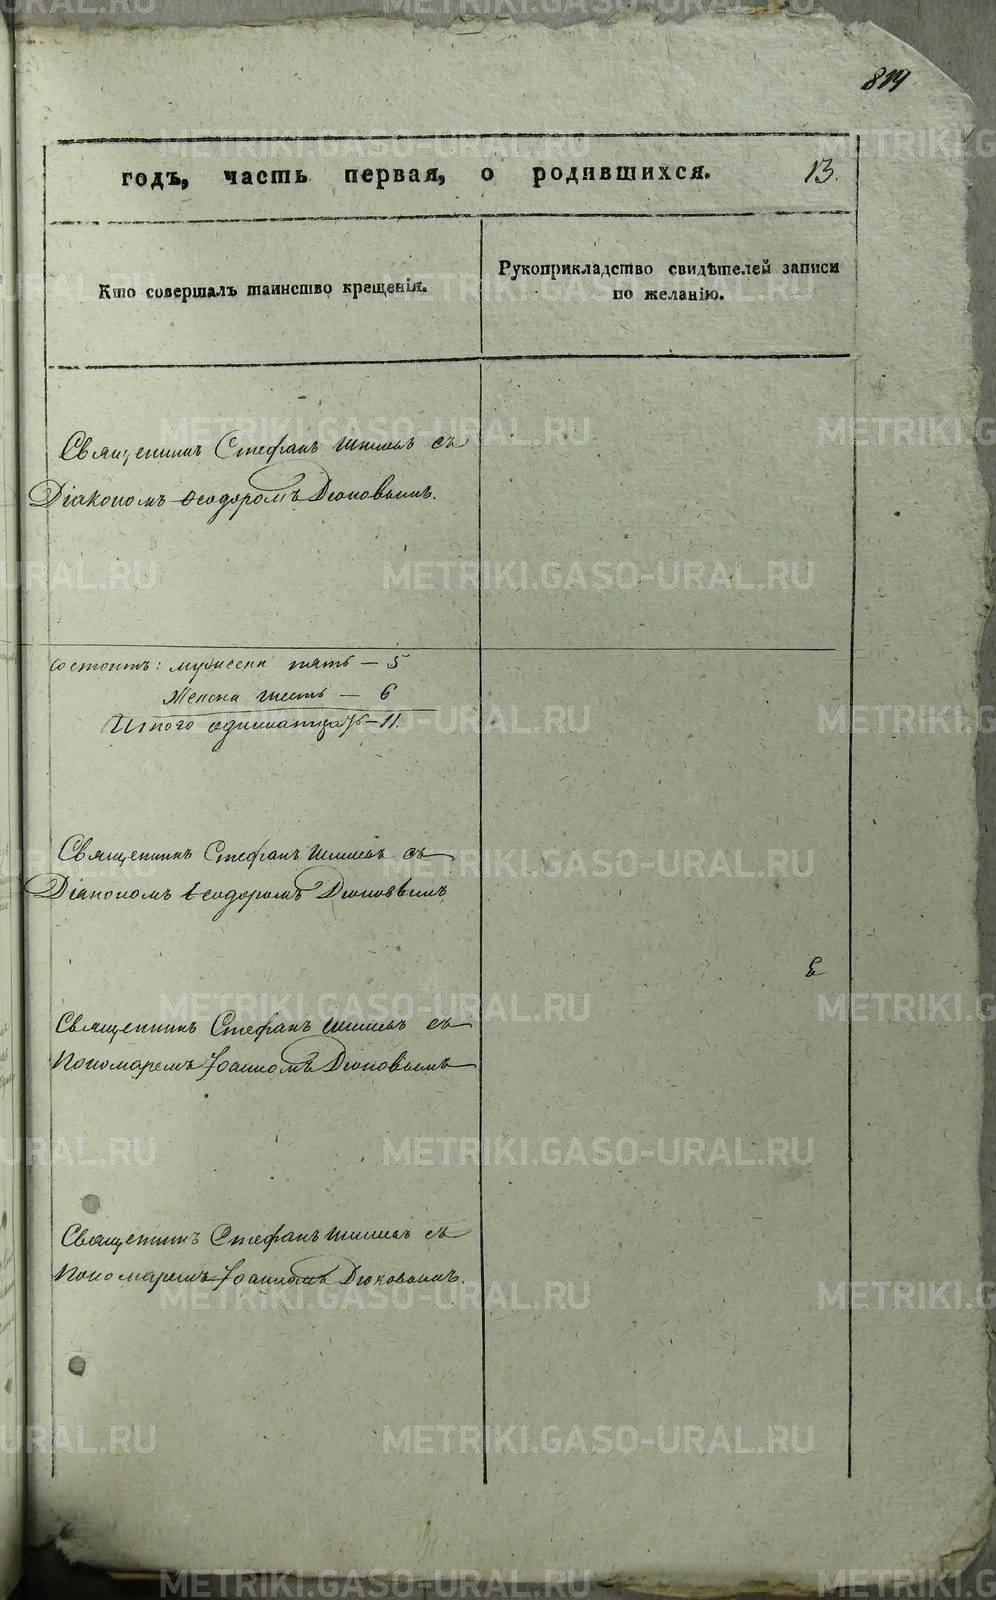 819
годъ, часть первая, о родившихся. 13.
Кто совершалъ таинство крещенія.
Рукоприкладство свидѣтелей записи
по желанію.
Священникъ Стефанъ съ
Діакономъ Ѳеодоромъ Дюковымъ.
состоитъ: мужеска пять – 5
Женска шесть – 6
Итого одиннатцать – 11.
Священникъ Стефанъ съ
Діакономъ Ѳеодоромъ Дюковымъ
Священникъ Стефанъ съ
Пономаремъ Іоанномъ Дюковымъ
Священникъ Стефанъ съ
Пономаремъ Іоанномъ Дюковымъ.
METRIKI.GASO-URAL.RU